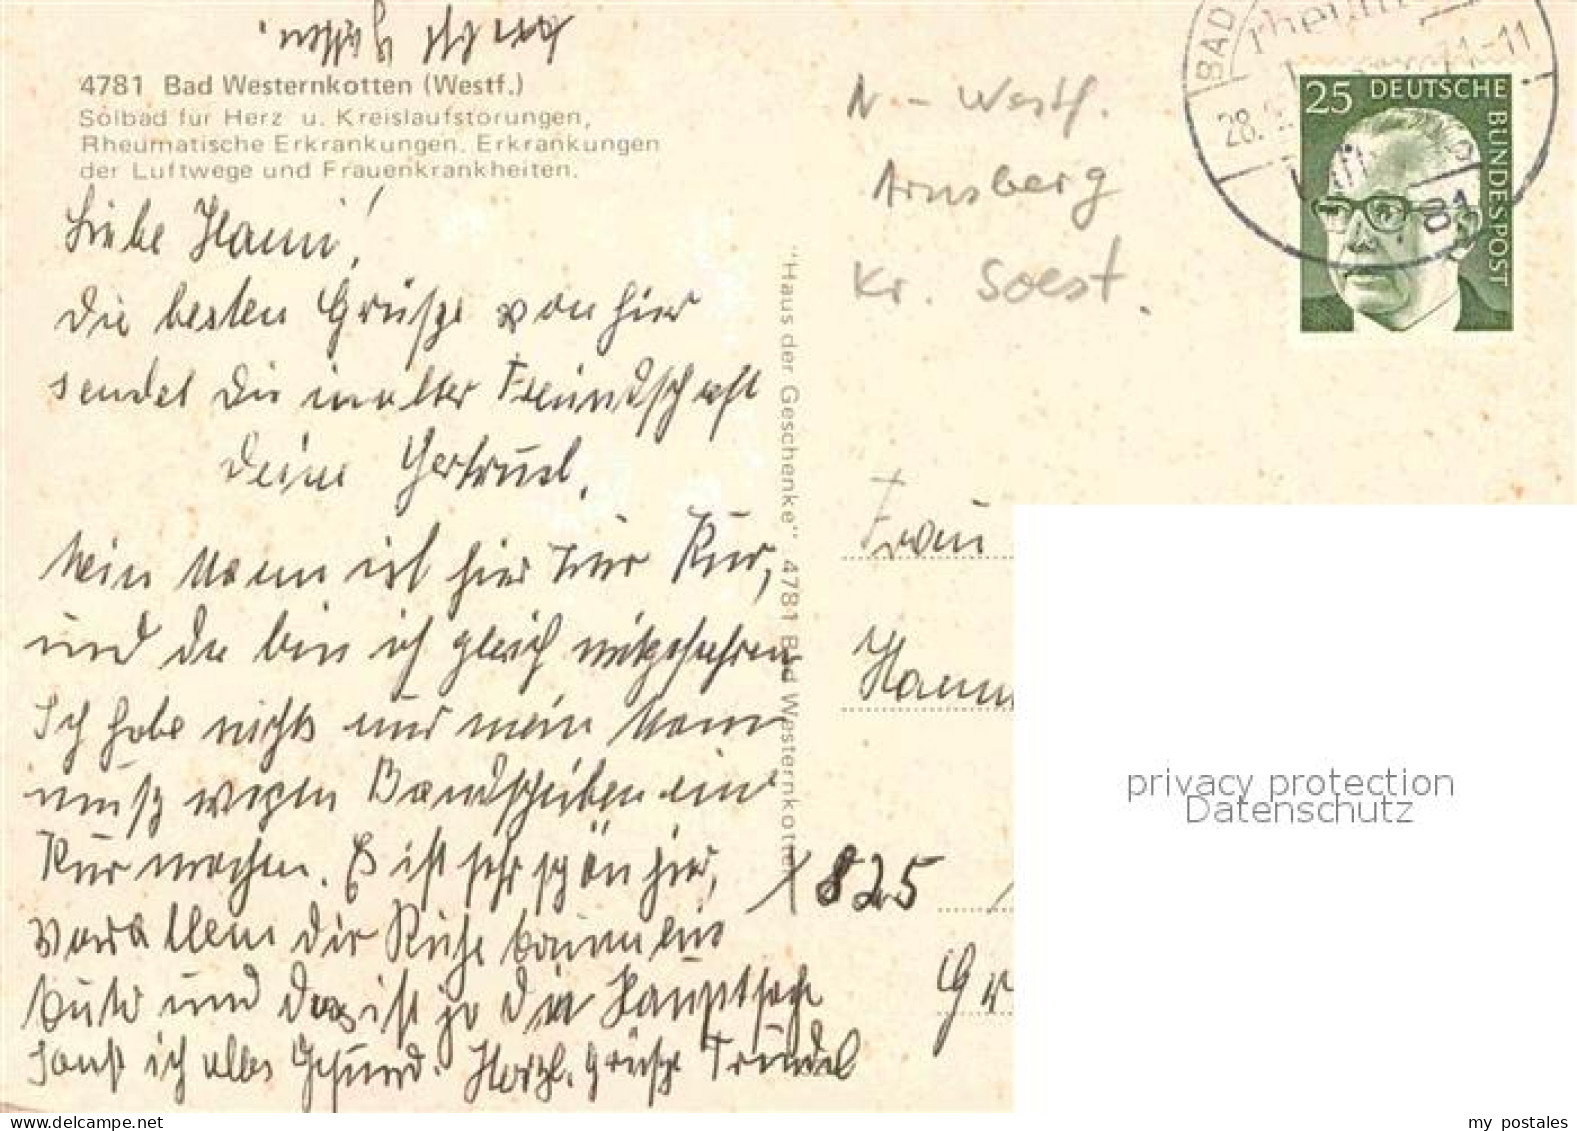 4781 Bad Westernkotten (Westf.)
Solbad für Herz u. Kreislaufstörungen,
Rheumatische Erkrankungen, Erkrankungen
der Luftwege und Frauenkrankheiten.
Liebe Hanni!
Die besten Grüße von hier
sendet Dir in alter Freundschaft
Deine Gertrud.
Mein Mann ist hier zur Kur,
und da bin ich gleich mitgefahren
Ich habe nichts und mein Mann
muß wegen Bandscheiben eine
Kur machen. Es ist sehr schön hier,
vor allem die Ruhe kaum ein
Auto und das ist ja die Hauptsache
sonst ist alles Gesund. Herzl. Grüße Trudel
"Haus der Geschenke" 4781 Bad Westernkotten
N - Westf.
Arnsberg
Kr. Soest.
BAD
rheum
28.
71-11
25 DEUTSCHE
BUNDESPOST
Frau
Hann
825
Gr
privacy protection
Datenschutz
www.delcampe.net
my_postales